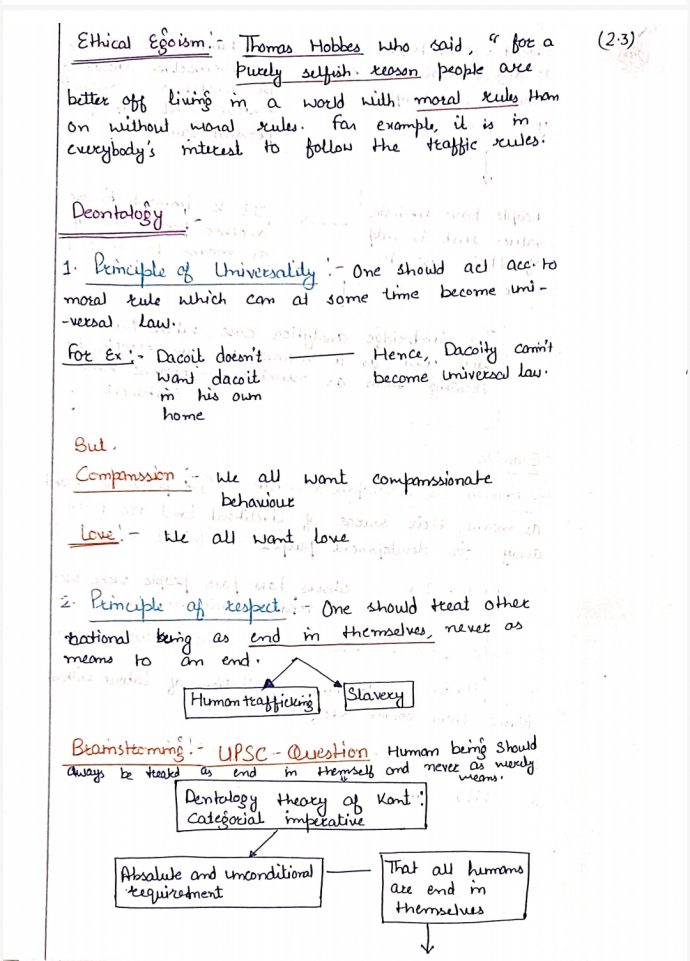 Ethical Egoism :- Thomas Hobbes who said, " for a
(2.3)
purely selfish reason people are
better off living in a world with moral rules than
on without moral rules. For example, it is in
everybody's interest to follow the traffic rules.
Deontology :-
1. Principle of Universality :- One should act acc. to
moral rule which can at some time become uni-
-versal law.
For Ex :- Dacoit doesn't
want dacoit
in his own
home
Hence, Dacoity cann't
become universal law.
But.
Companssion :- We all want companssionate
behaviour
Love :- We all want love
2. Principle of respect :- One should treat other
rational being as end in themselves, never as
means to an end.
Human trafficking
Slavery
Brainstorming :- UPSC - Question Human being should
always be treated as end in themself and never as merely
means.
Dentology theory of Kant :
Categorial imperative
Absolute and unconditional
requirement
That all humans
are end in
themselves